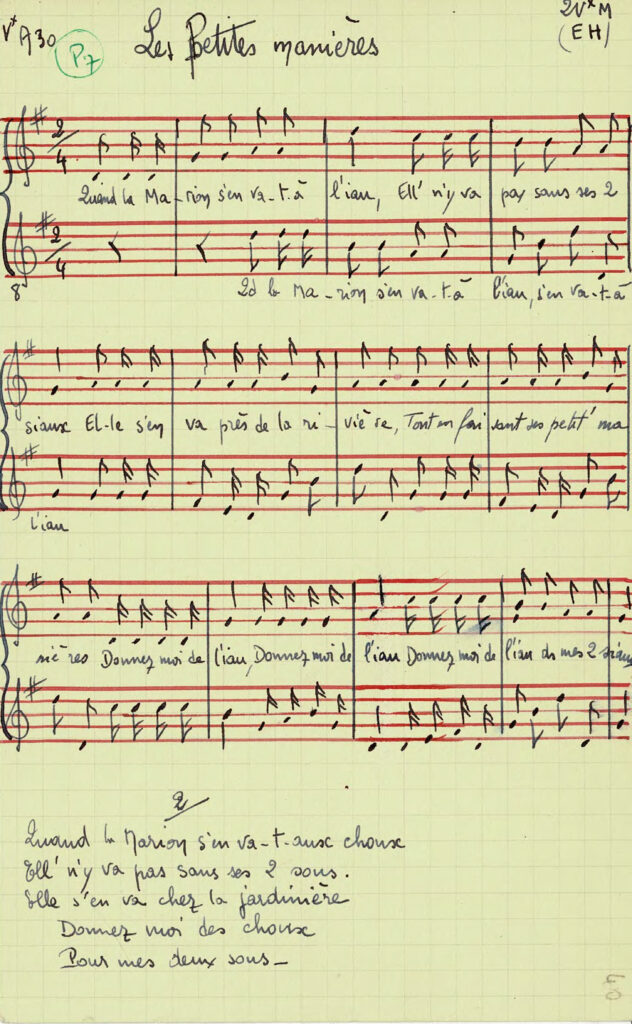 Vx A30 P.7 Les Petites manières 2Vx M
(EH)
2/4 Quand la Ma-rion s'en va-t-à l'iau, Ell' n'y va pas sans ses 2
2/4
8 2d la Ma-rion s'en va-t-à l'iau, s'en va-t-à
siaux El-le s'en va près de la ri-vière, Tout en fai sant ses petit' ma
l'iau
niè res Donnez moi de l'iau, Donnez moi de l'iau Donnez moi de l'iau ds mes 2 siaux
2
Quand la Marion s'en va-t-aux choux
Ell' n'y va pas sans ses 2 sous.
Elle s'en va chez la jardinière
Donnez moi des choux
Pour mes deux sous_